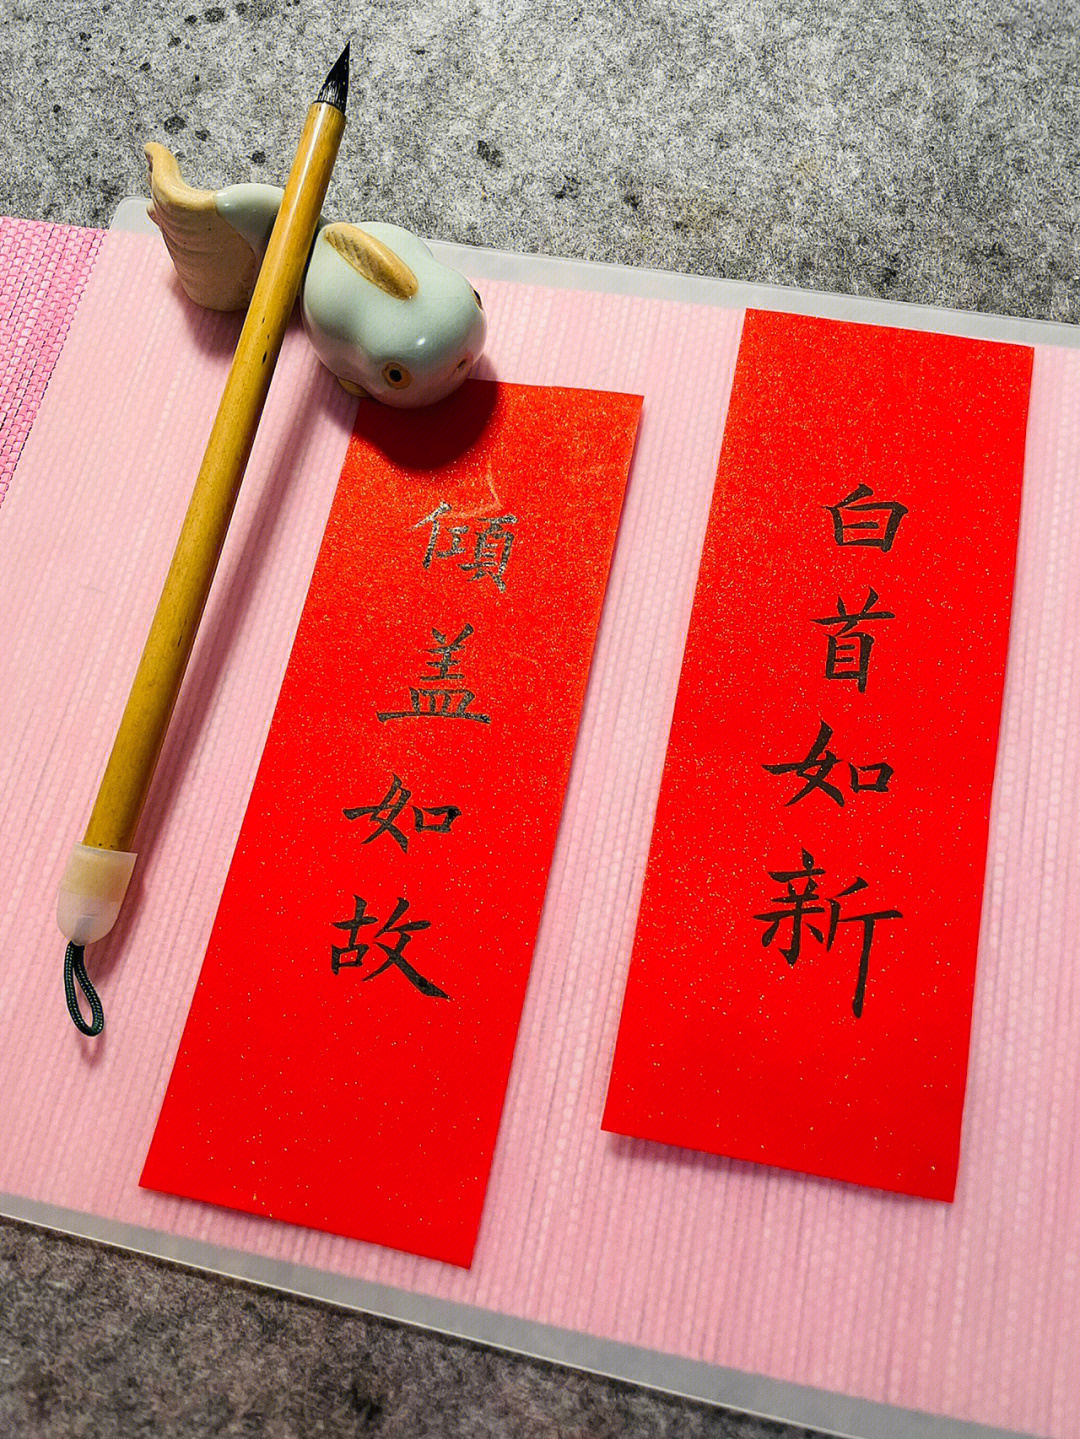 白首如新
倾盖如故